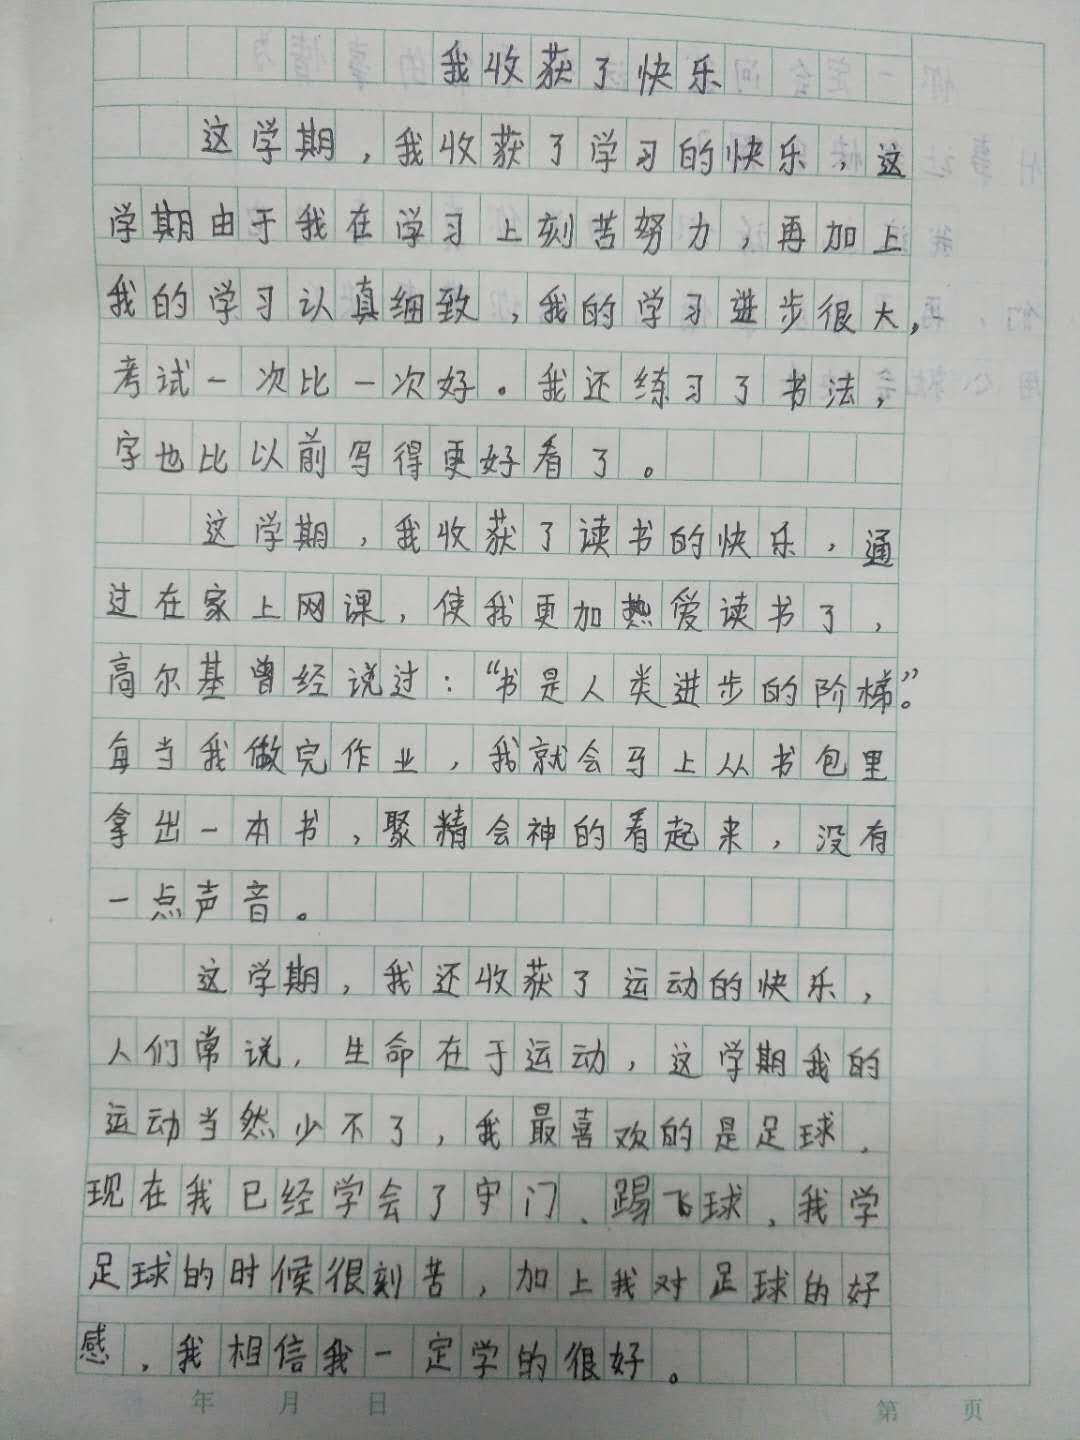 我收获了快乐
这学期，我收获了学习的快乐，这
学期由于我在学习上刻苦努力，再加上
我的学习认真细致，我的学习进步很大，
考试一次比一次好。我还练习了书法，
字也比以前写得更好看了。
这学期，我收获了读书的快乐，通
过在家上网课，使我更加热爱读书了，
高尔基曾经说过：“书是人类进步的阶梯。”
每当我做完作业，我就会马上从书包里
拿出一本书，聚精会神的看起来，没有
一点声音。
这学期，我还收获了运动的快乐，
人们常说，生命在于运动，这学期我的
运动当然少不了，我最喜欢的是足球，
现在我已经学会了守门、踢飞球，我学
足球的时候很刻苦，加上我对足球的好
感，我相信我一定学的很好。
年 月 日 第 页